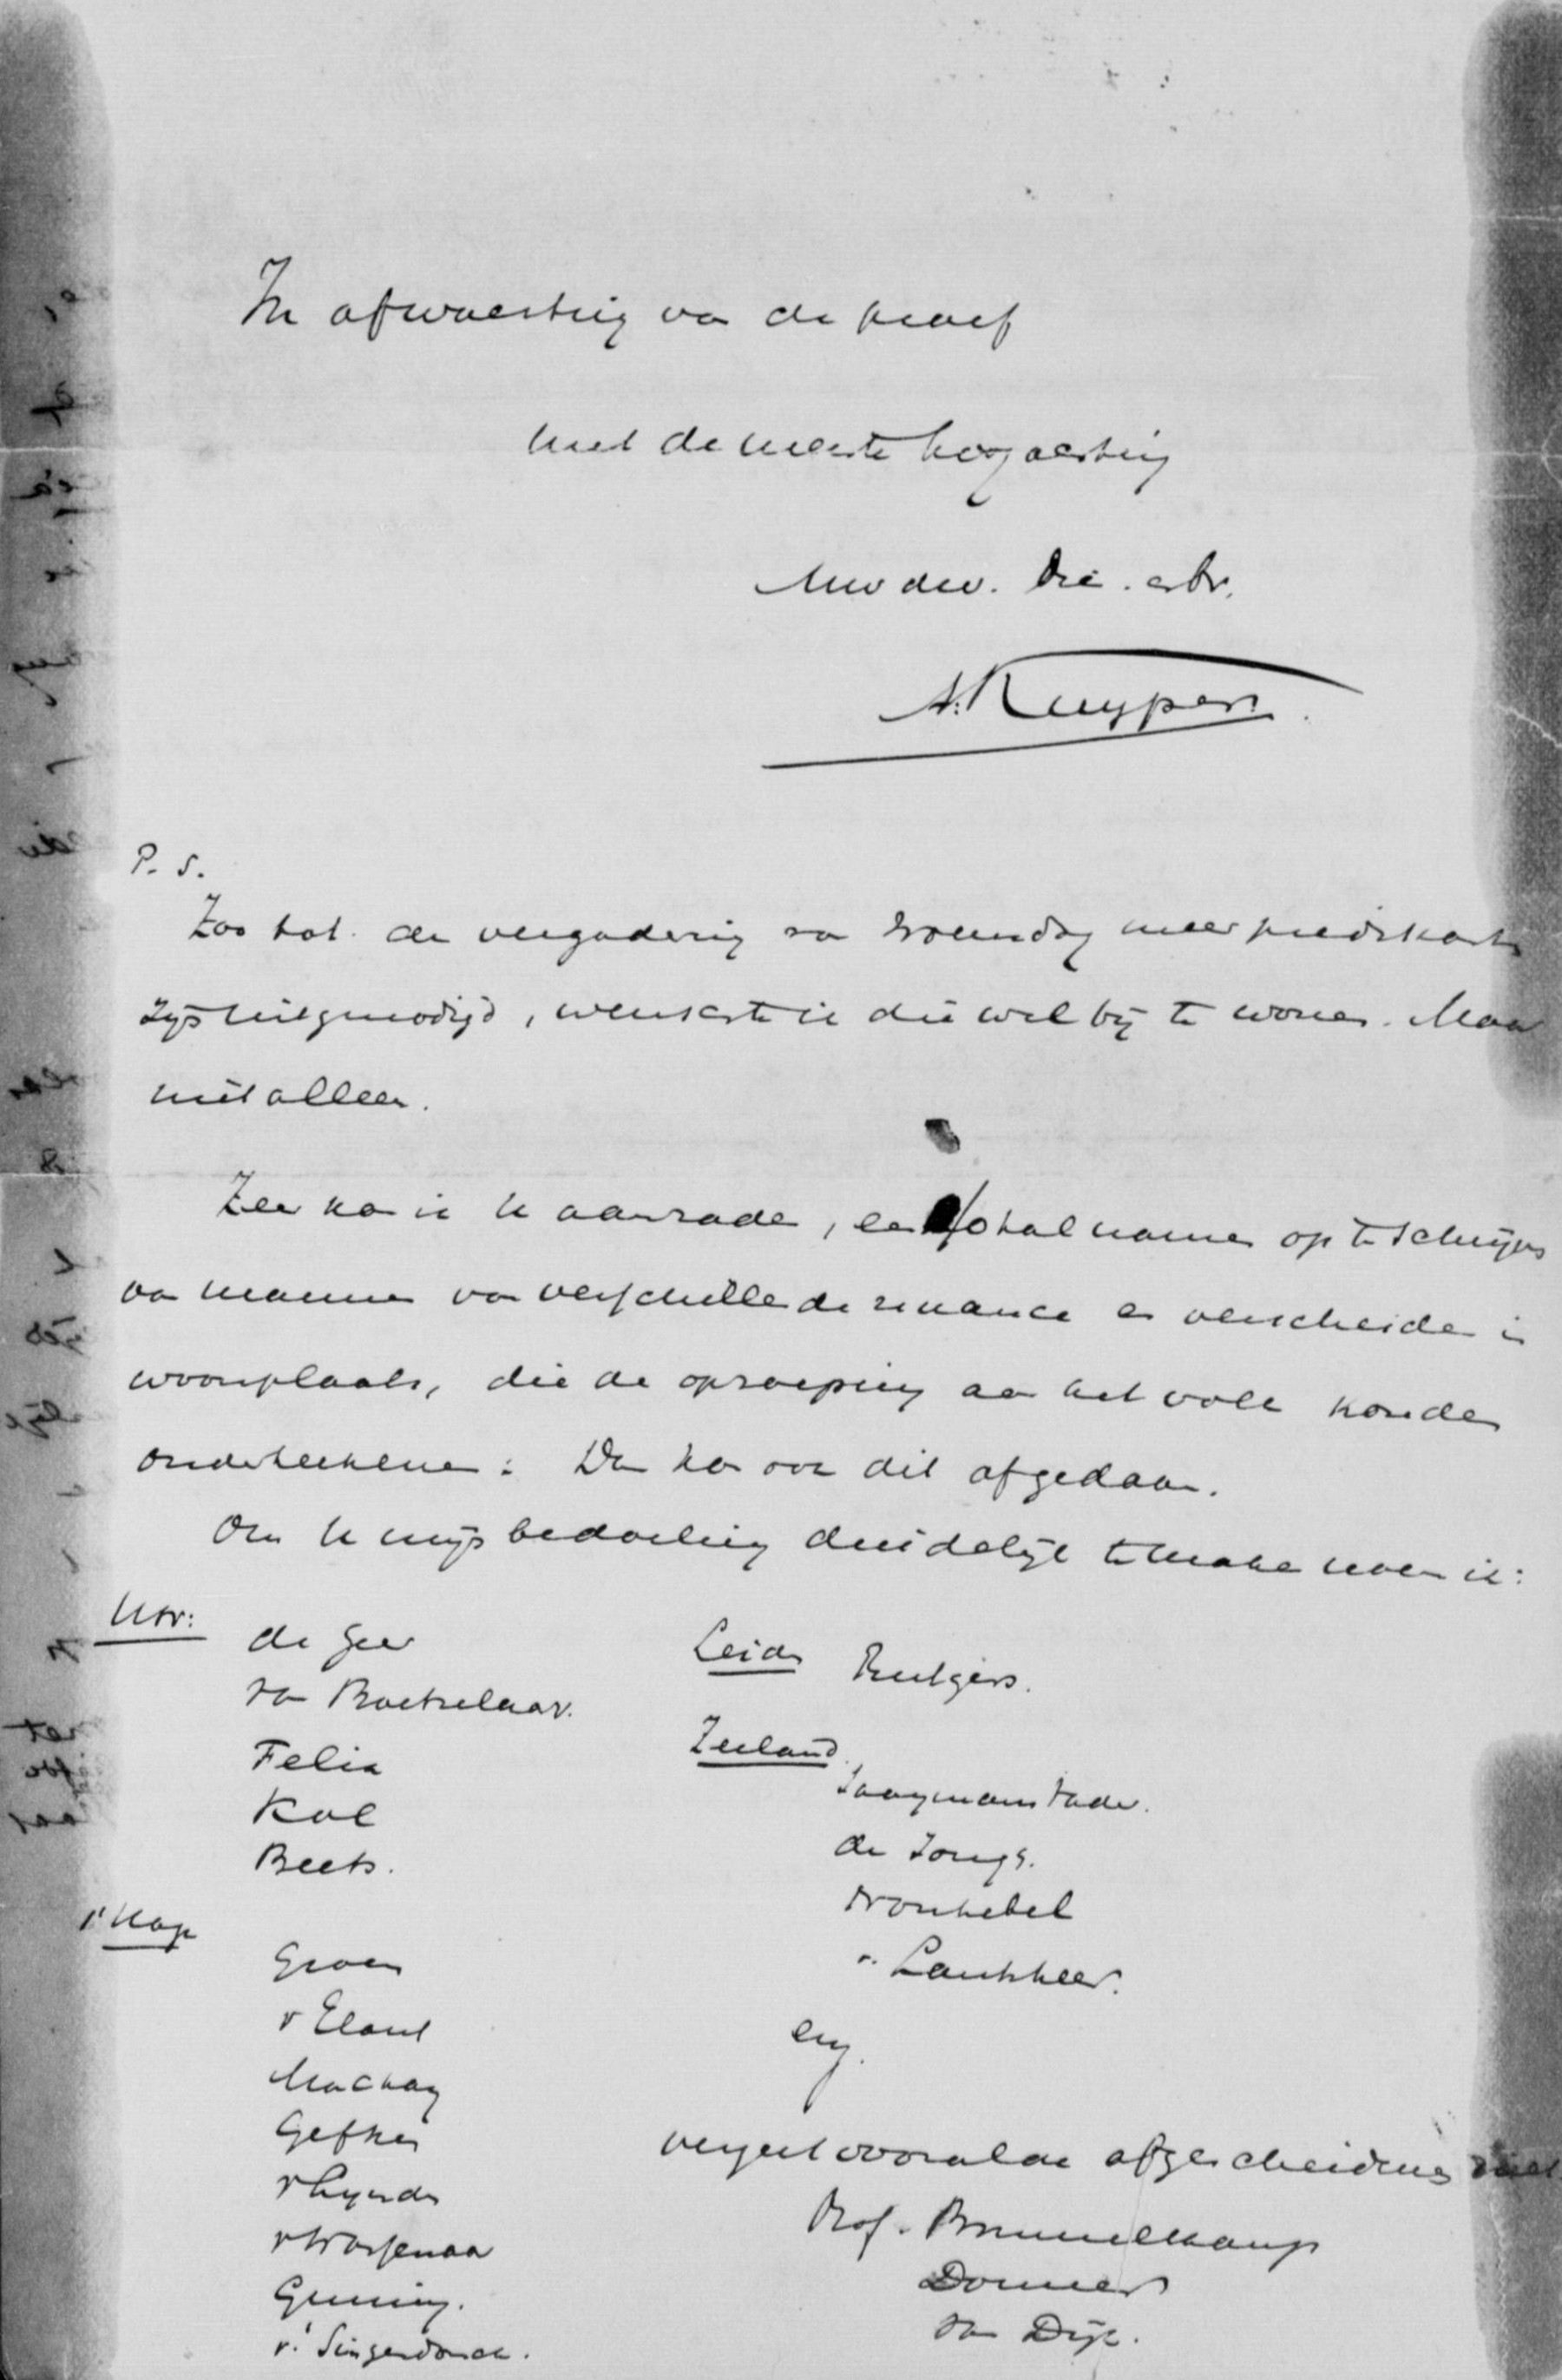 In afwachting van de proef
met de meeste hoogachting
Uw dw. die. en br.
A. Kuyper.
P. S.
Zoo tot de vergadering van woensdag meer predikanten
zijn uitgenodigd, wenschte ik die wel bij te wonen. Maar
niet alleen.
Zeer kan ik U aanraden, een total namen op te schrijven
van mannen van verschillende nuance en verscheiden in
woonplaats, die de oproeping aan het volk konden
onderteekenen. Dan kan ook dit afgedaan.
Om U mijn bedoeling duidelijk te maken noem ik:
Utr:
de Geer
van Boetzelaar.
Felix
Kol
Beets.
's Hage
Groen
v Elout
Mackay
Gefken
v Lynden
v Wassenaar
Gunning.
v. Singendonck.
Leiden Rutgers.
Zeeland
Saaymans Vader.
de Jonge.
Wonhebel
v. Lankheer.
enz.
vergeet vooral de afgescheidenen niet
Prof. Brummelkamp
Donner
van Dijk.